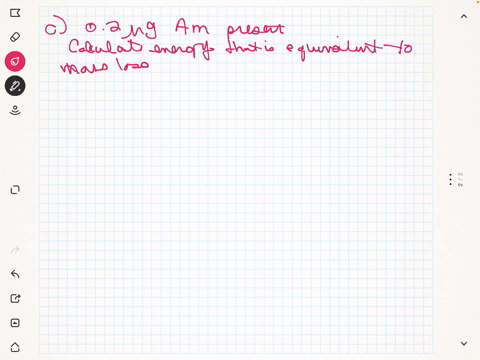 c) 0.2 µg Am present
Calculat energy that is equivalent to
mass loss
2 / 2